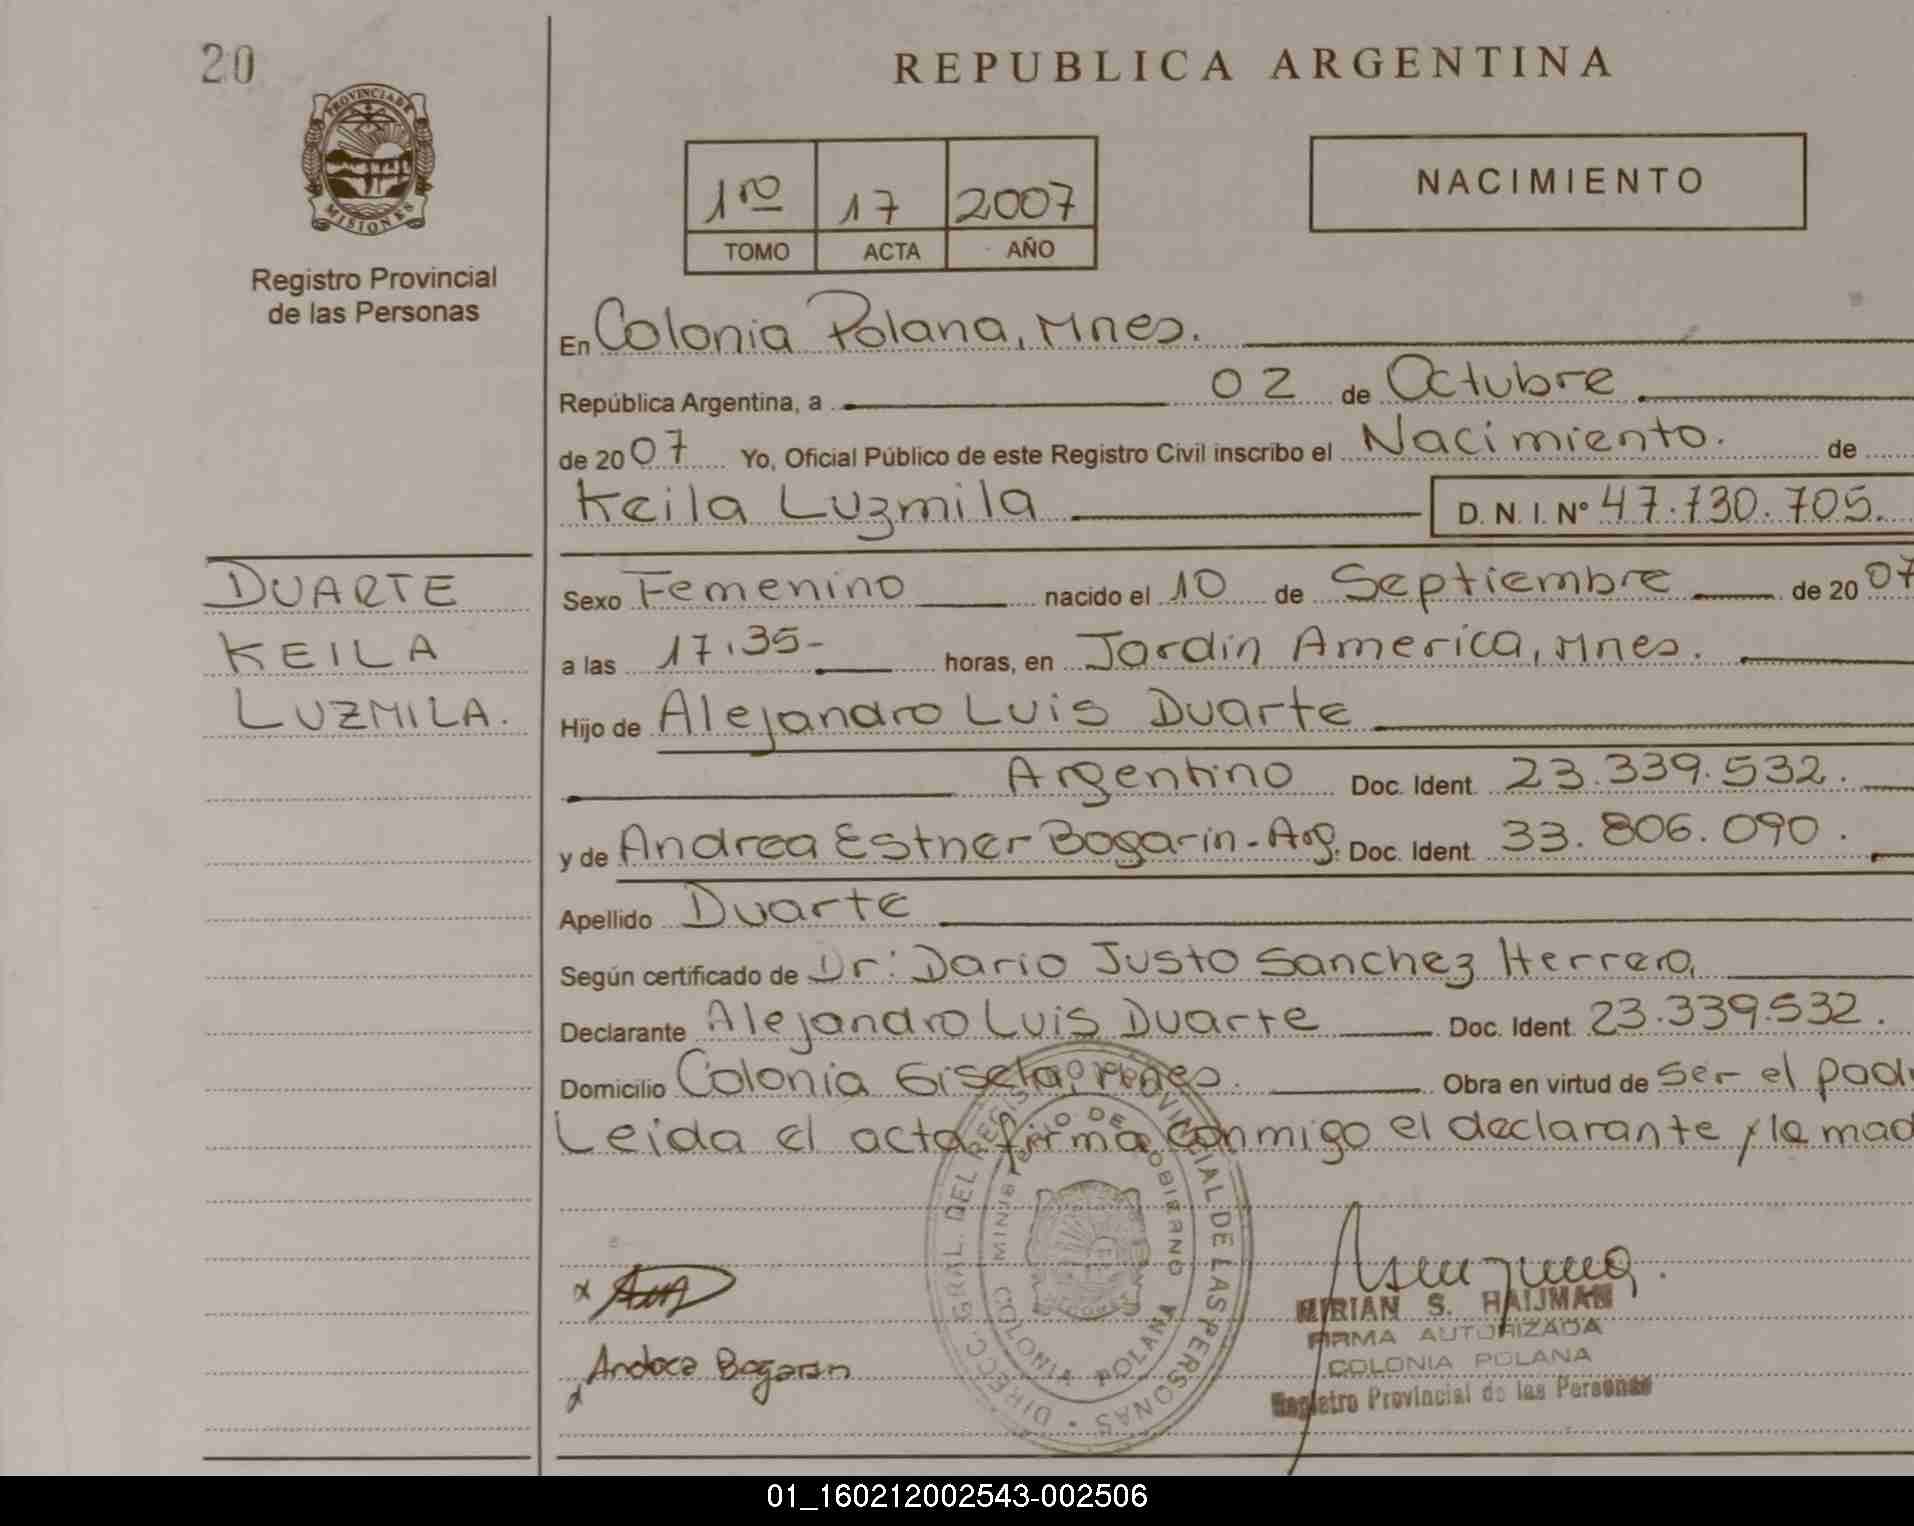 20
REPUBLICA ARGENTINA
PROVINCIA DE
MISIONES
Registro Provincial
de las Personas
1ro 17 2007
TOMO ACTA AÑO
NACIMIENTO
En Colonia Polana, Mnes.
República Argentina, a 02 de Octubre
de 2007 Yo, Oficial Público de este Registro Civil inscribo el Nacimiento. de
Keila Luzmila D. N. I. Nº 47.730.705.
DUARTE
KEILA
LUZMILA.
Sexo Femenino nacido el 10 de Septiembre de 2007
a las 17,35- horas, en Jardin America, Mnes.
Hijo de Alejandro Luis Duarte
Argentino Doc. Ident. 23.339.532.
y de Andrea Esther Bogarin - Arg. Doc. Ident. 33.806.090.
Apellido Duarte
Según certificado de Dr: Dario Justo Sanchez Herrera,
Declarante Alejandro Luis Duarte Doc. Ident. 23.339.532.
Domicilio Colonia Gisela, Mnes. Obra en virtud de ser el pad
Leida el acta firma conmigo el declarante y la mad
DIRECC. GRAL. DEL REGISTRO PROVINCIAL DE LAS PERSONAS
MINISTERIO DE GOBIERNO
COLONIA POLANA
Bogarin
MIRIAN S. HAIJMAN
FIRMA AUTORIZADA
COLONIA POLANA
Registro Provincial de las Personas
01_160212002543-002506